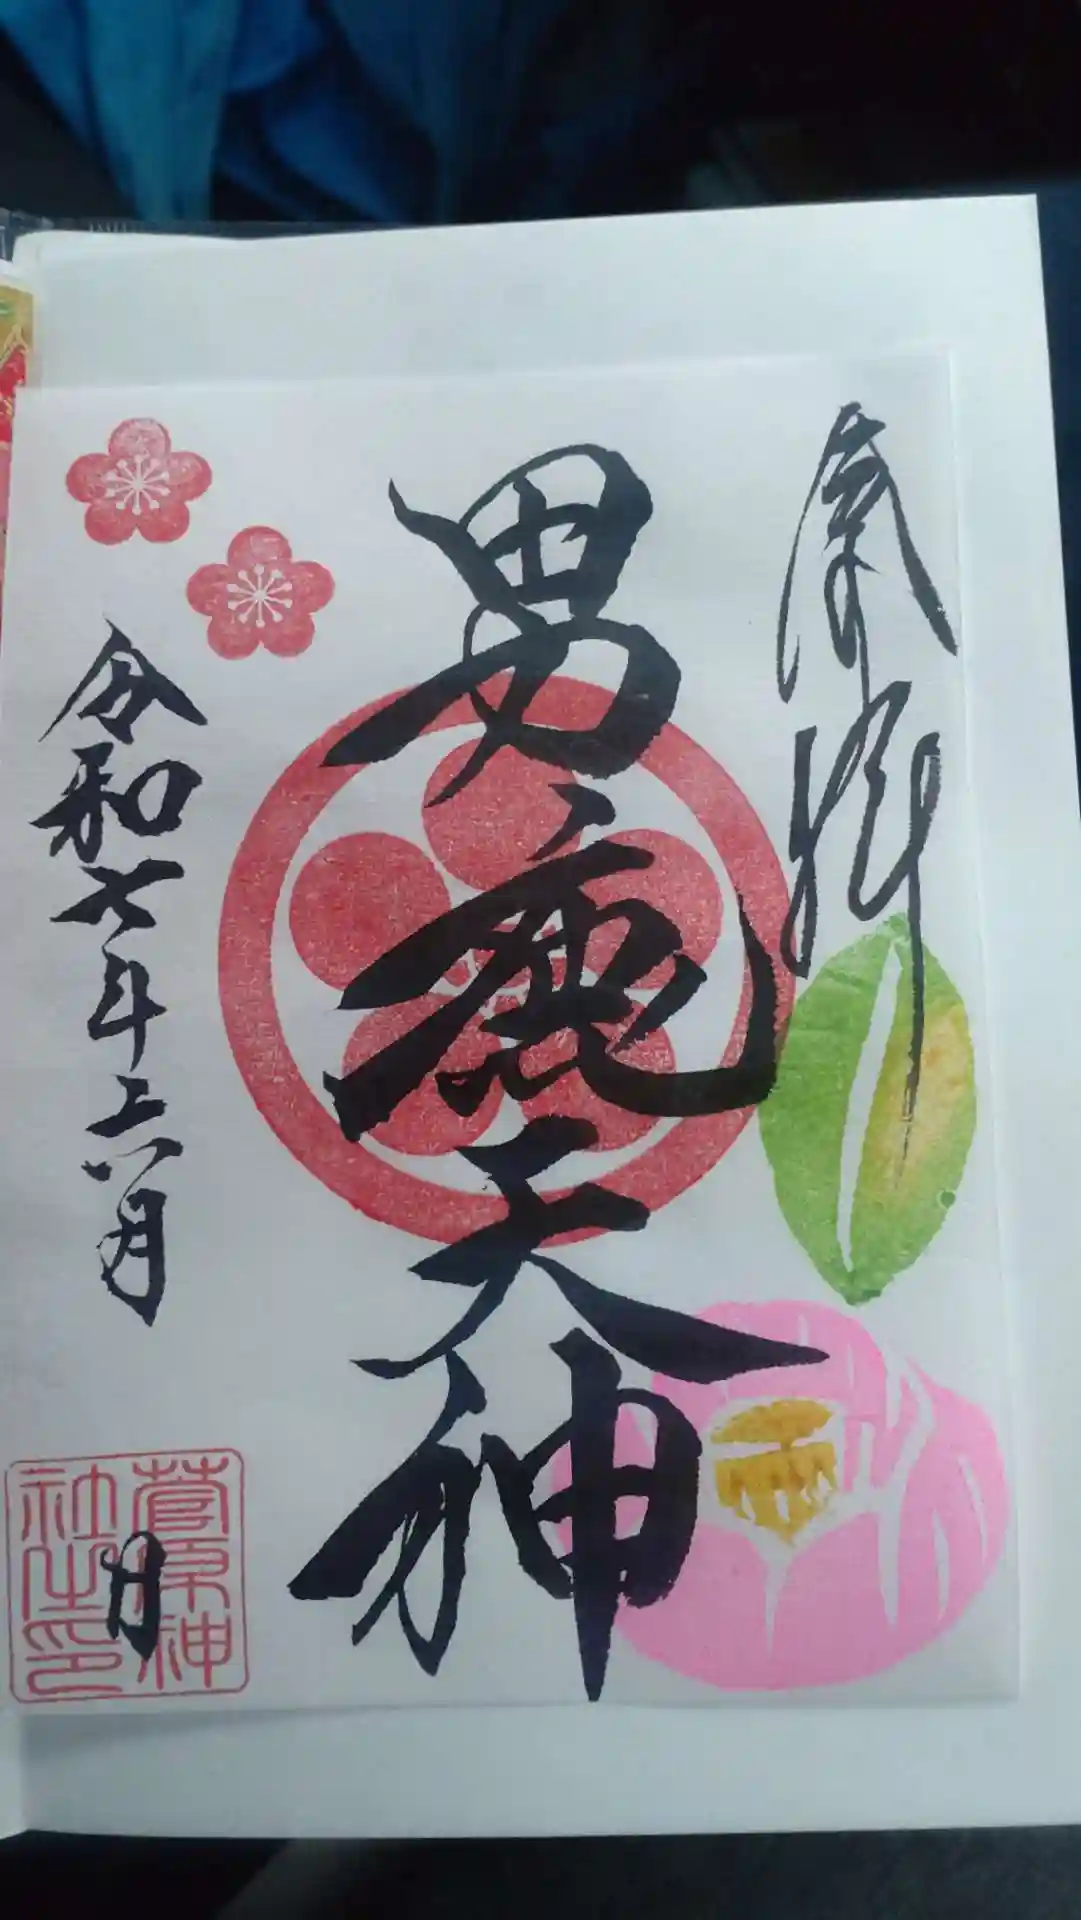 奉拝
男鹿天神
令和七年六月
日
菅原神
社之印